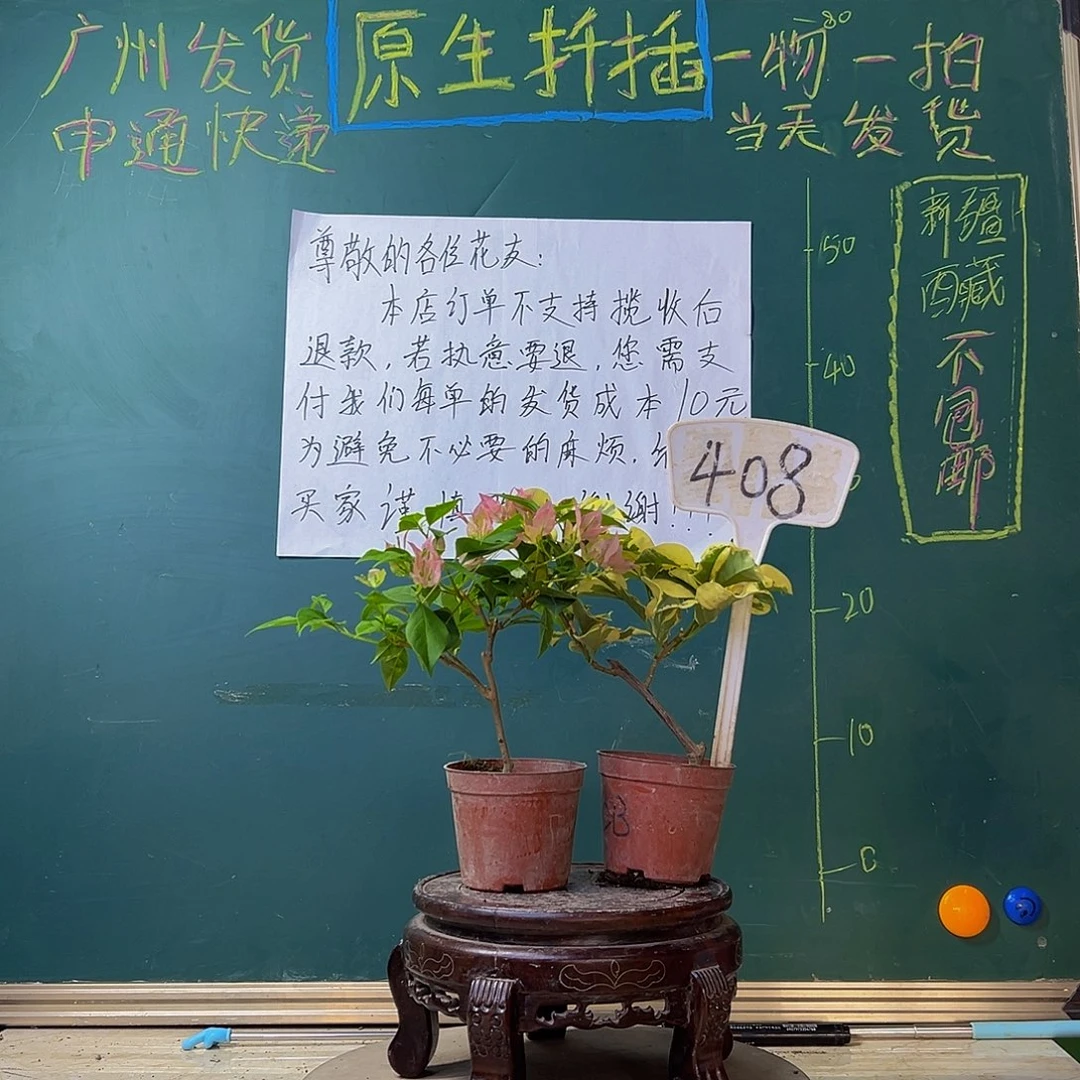 广州发货
申通快递
原生扦插
一物一拍
当天发货
尊敬的各位花友:
本店订单不支持揽收后
退款,若执意要退,您需支
付我们每单的发货成本10元
为避免不必要的麻烦.
买家谨慎 谢!!
408
新疆
西藏
不包邮
50
40
20
10
0